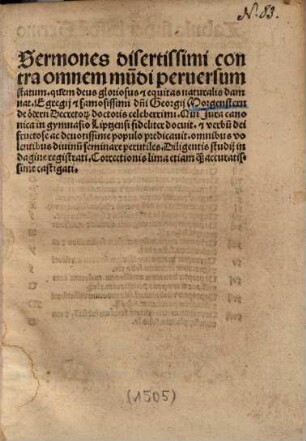 N. 83.
Sermones disertissimi con
tra omnem mūdi peruersum
statum. quem deus gloriosus ⁊ equitas naturalis dam
nat. Egregij ⁊ famosissimi dñi Georgij Morgenstern
de Decretoꝝ doctoris celeberrimi. Qui Jura cano
nica in gymnasio Liptzensi fideliter docuit. ⁊ verbū dei
fructose ac deuotissime populo predicauit. omnibus vo
lentibus diuinū seminare perutiles. Diligentis studij in
dagine registrati. Correctionis lima etiam ꝙ accuratis
sime castigati.
(1505)